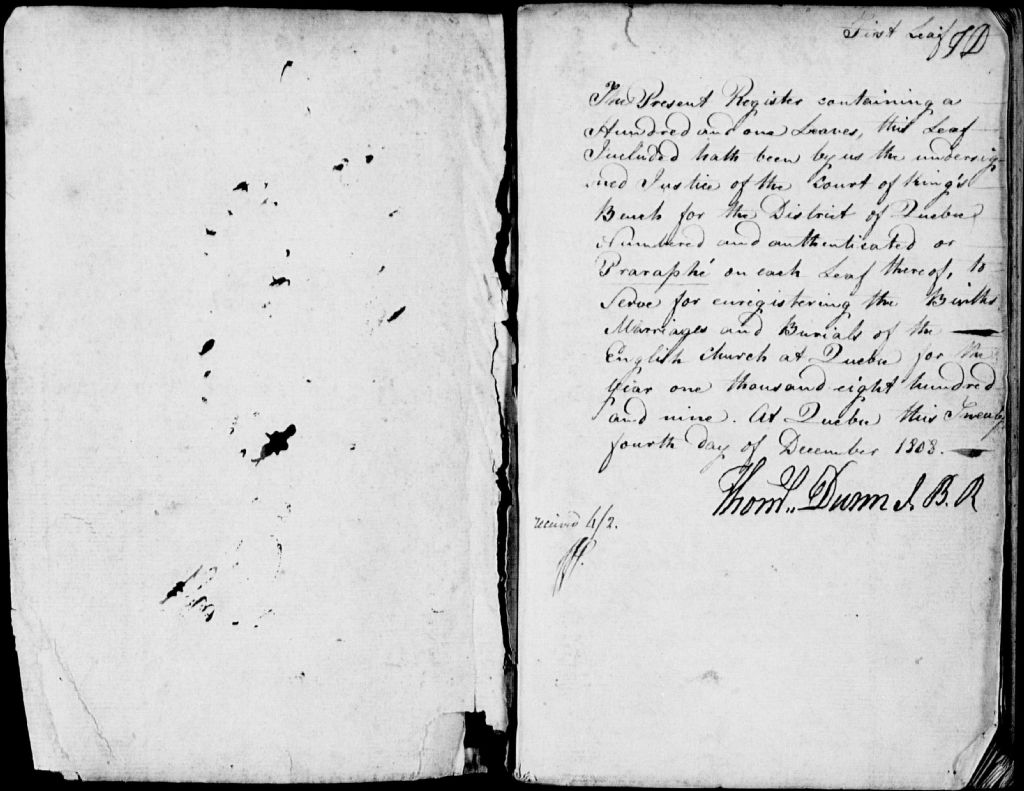 First Leaf TD
The Present Register containing a
Hundred and one Leaves, this Leaf
Included hath been by us the undersig
ned Justice of the Court of King's
Bench for the District of Quebec
Numbered and authenticated or
Praraphé on each Leaf thereof, to
Serve for enregistering the Births
Marriages and Burials of the
English Church at Quebec for the
year one thousand eight hundred
and nine. At Quebec this Twenty
fourth day of December 1808.
Thoms. Dunn J. B. R
received 4/2.